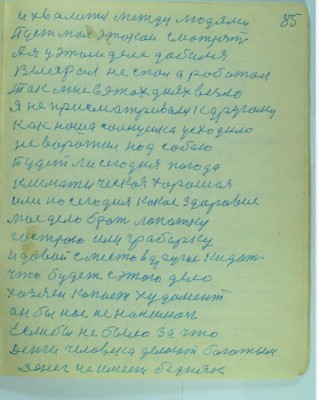 и хвалити между людями 85
Пуст мол этокои смотрят
Ая у этом деле добился
Вмеярсл не спол а работал
Так мне вэтох днях везло
Я не присматривали к другому
Как наша солнушка усходило
не ворожил под собою
Будет ли сегодня погода
климатическоя хорошоя
или но сегодня какое здоровие
мое дело брат лопатку
гострою или грабарку
и довай сместо вдругое кидат
что будет сэтого дело
хозяен копает худомент
ан бы мне не нанимал
Еслибы не было за что
Денги человека делоют богатым
Денег не имеет бедняк